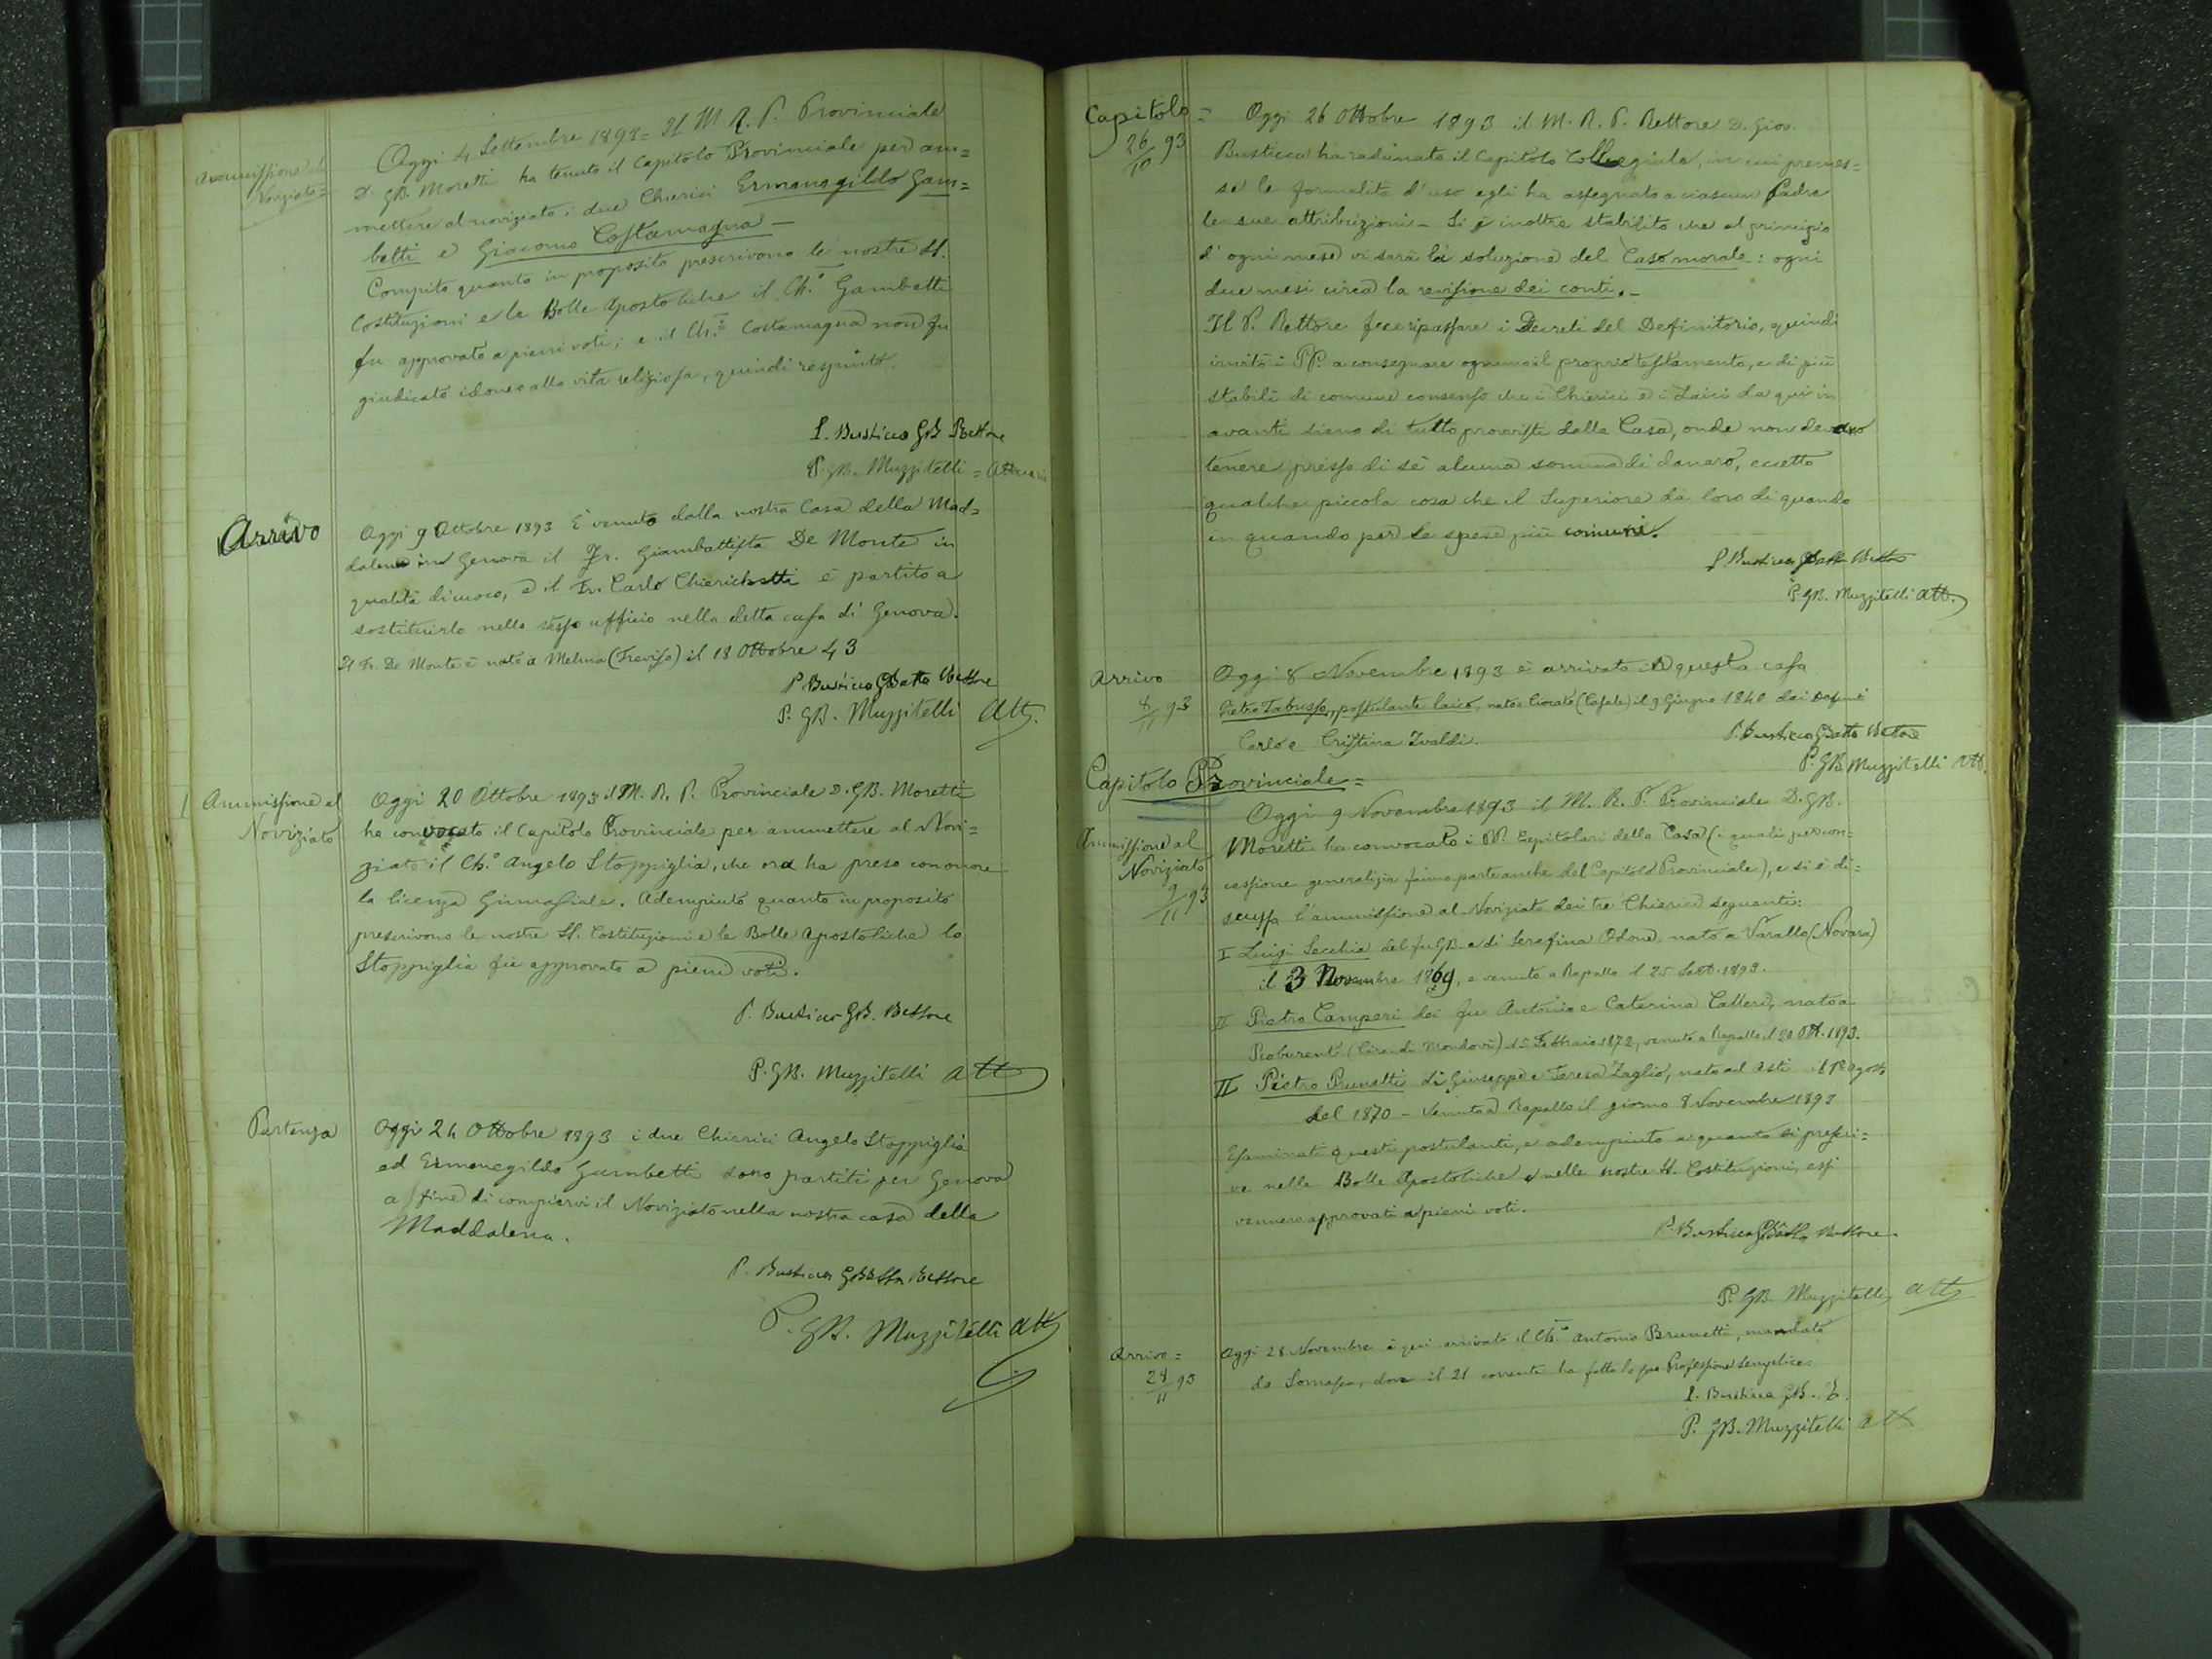 Ammissione al
Noviziato =
Oggi 4 Settembre 1893 = Il M. R. P. Provinciale
D. GB. Moretti ha tenuto il Capitolo Provinciale per am=
mettere al noviziato i due Chierici Ermenegildo Gam=
betti e Giacomo Costamagna —
Compito quanto in proposito prescrivono le nostre SS.
Costituzioni e le Bolle Apostoliche il Ch.º Gambetti
fu approvato a pieni voti; e il Ch.º Costamagna non fu
giudicato idoneo alla vita religiosa, quindi respinto.
P. Bustica GB Rettore
P. GB. Muzzitelli = Attuario
Arrivo
Oggi 9 Ottobre 1893 È venuto dalla nostra Casa della Mad=
dalena in Genova il Fr. Giambattista De Monte in
qualità di cuoco, e il Fr. Carlo Chierichetti è partito a
sostituirlo nello stesso ufficio nella detta casa di Genova.
Il Fr. De Monte è nato a Melma (Treviso) il 18 Ottobre 43
P. Bustica GBatta Rettore
P. GB. Muzzitelli Att.
Ammissione al
Noviziato
Oggi 20 Ottobre 1893 il M. R. P. Provinciale D. GB. Moretti
ha convocato il Capitolo Provinciale per ammettere al Novi=
ziato il Ch.º Angelo Stoppiglia, che ora ha preso con onore
la licenza Ginnasiale. Adempiuto quanto in proposito
prescrivono le nostre SS. Costituzioni e le Bolle Apostoliche lo
Stoppiglia fu approvato a pieni voti.
P. Bustica GB. Rettore
P. GB. Muzzitelli Att
Partenza
Oggi 24 Ottobre 1893 i due Chierici Angelo Stoppiglia
ed Ermenegildo Gambetti sono partiti per Genova
a fine di compiervi il Noviziato nella nostra casa della
Maddalena.
P. Bustica GBatta Rettore
P. GB. Muzzitelli Att
Capitolo =
26/10 93
Oggi 26 Ottobre 1893 il M. R. P. Rettore D. Giov.
Bustica ha radunato il Capitolo Collegiale, in cui premes=
se le formalità d'uso egli ha assegnato a ciascun Padre
le sue attribuzioni — Si è inoltre stabilito che al principio
d'ogni mese vi sarà la soluzione del Caso morale: ogni
due mesi circa la revisione dei conti. —
Il P. Rettore fece ripassare i Decreti del Definitorio, quindi
invitò i PP. a consegnare ognuno il proprio testamento, e di più
stabilì di comune consenso che i Chierici e i Laici da qui in
avanti sieno di tutto provvisti dalla Casa, onde non devono
tenere presso di sè alcuna somma di danaro, eccetto
qualche piccola cosa che il Superiore dà loro di quando
in quando per le spese più comuni.
P Bustica GBatta Rettore
P. GB. Muzzitelli Att.
Arrivo
8/11 93
Oggi 8 Novembre 1893 è arrivato in questa casa
Pietro Tabusso, postulante laico, nato a (Casale) il 9 Giugno 1840 dai
Carlo e Cristina Ivaldi.
P. Bustica GBatta Rettore
P. GB. Muzzitelli Att.
Capitolo Provinciale =
Ammissione al
Noviziato
9/11 93
Oggi 9 Novembre 1893 il M. R. P. Provinciale D. GB.
Moretti ha convocato i PP. Capitolari della Casa (i quali per con=
cessione generalizia fanno parte anche del Capitolo Provinciale), e si è di=
scussa l'ammissione al Noviziato dei tre Chierici seguenti:
I Luigi Secchia del fu GB. e di Serafina Odone, nato a Varallo (Novara)
il 3 Novembre 1869, e venuto a Rapallo il 25 Sett. 1893.
II Pietro Camperi dei fu Antonio e Caterina nato a
Roburent (Circ. di Mondovì) 15 Febbraio 1872, venuto a Rapallo il 20 Ott. 1893.
III Pietro Prunetti di Giuseppe e Teresa Zaglio, nato ad Asti il 18 agosto
del 1870 — Venuto a Rapallo il giorno 8 Novembre 1893
Esaminati questi postulanti, e adempiuto a quanto si prescri=
ve nelle Bolle Apostoliche e nelle nostre SS. Costituzioni, essi
vennero approvati a pieni voti.
P. Bustica GBatta Rettore
P. GB. Muzzitelli Att
Arrivo =
28/11 93
Oggi 28 Novembre è qui arrivato il Ch.º Antonio Brunetti, mandato
da Somasca, dove il 21 corrente ha fatto la sua Professione semplice.
P. Bustica GB. R.
P. GB. Muzzitelli Att